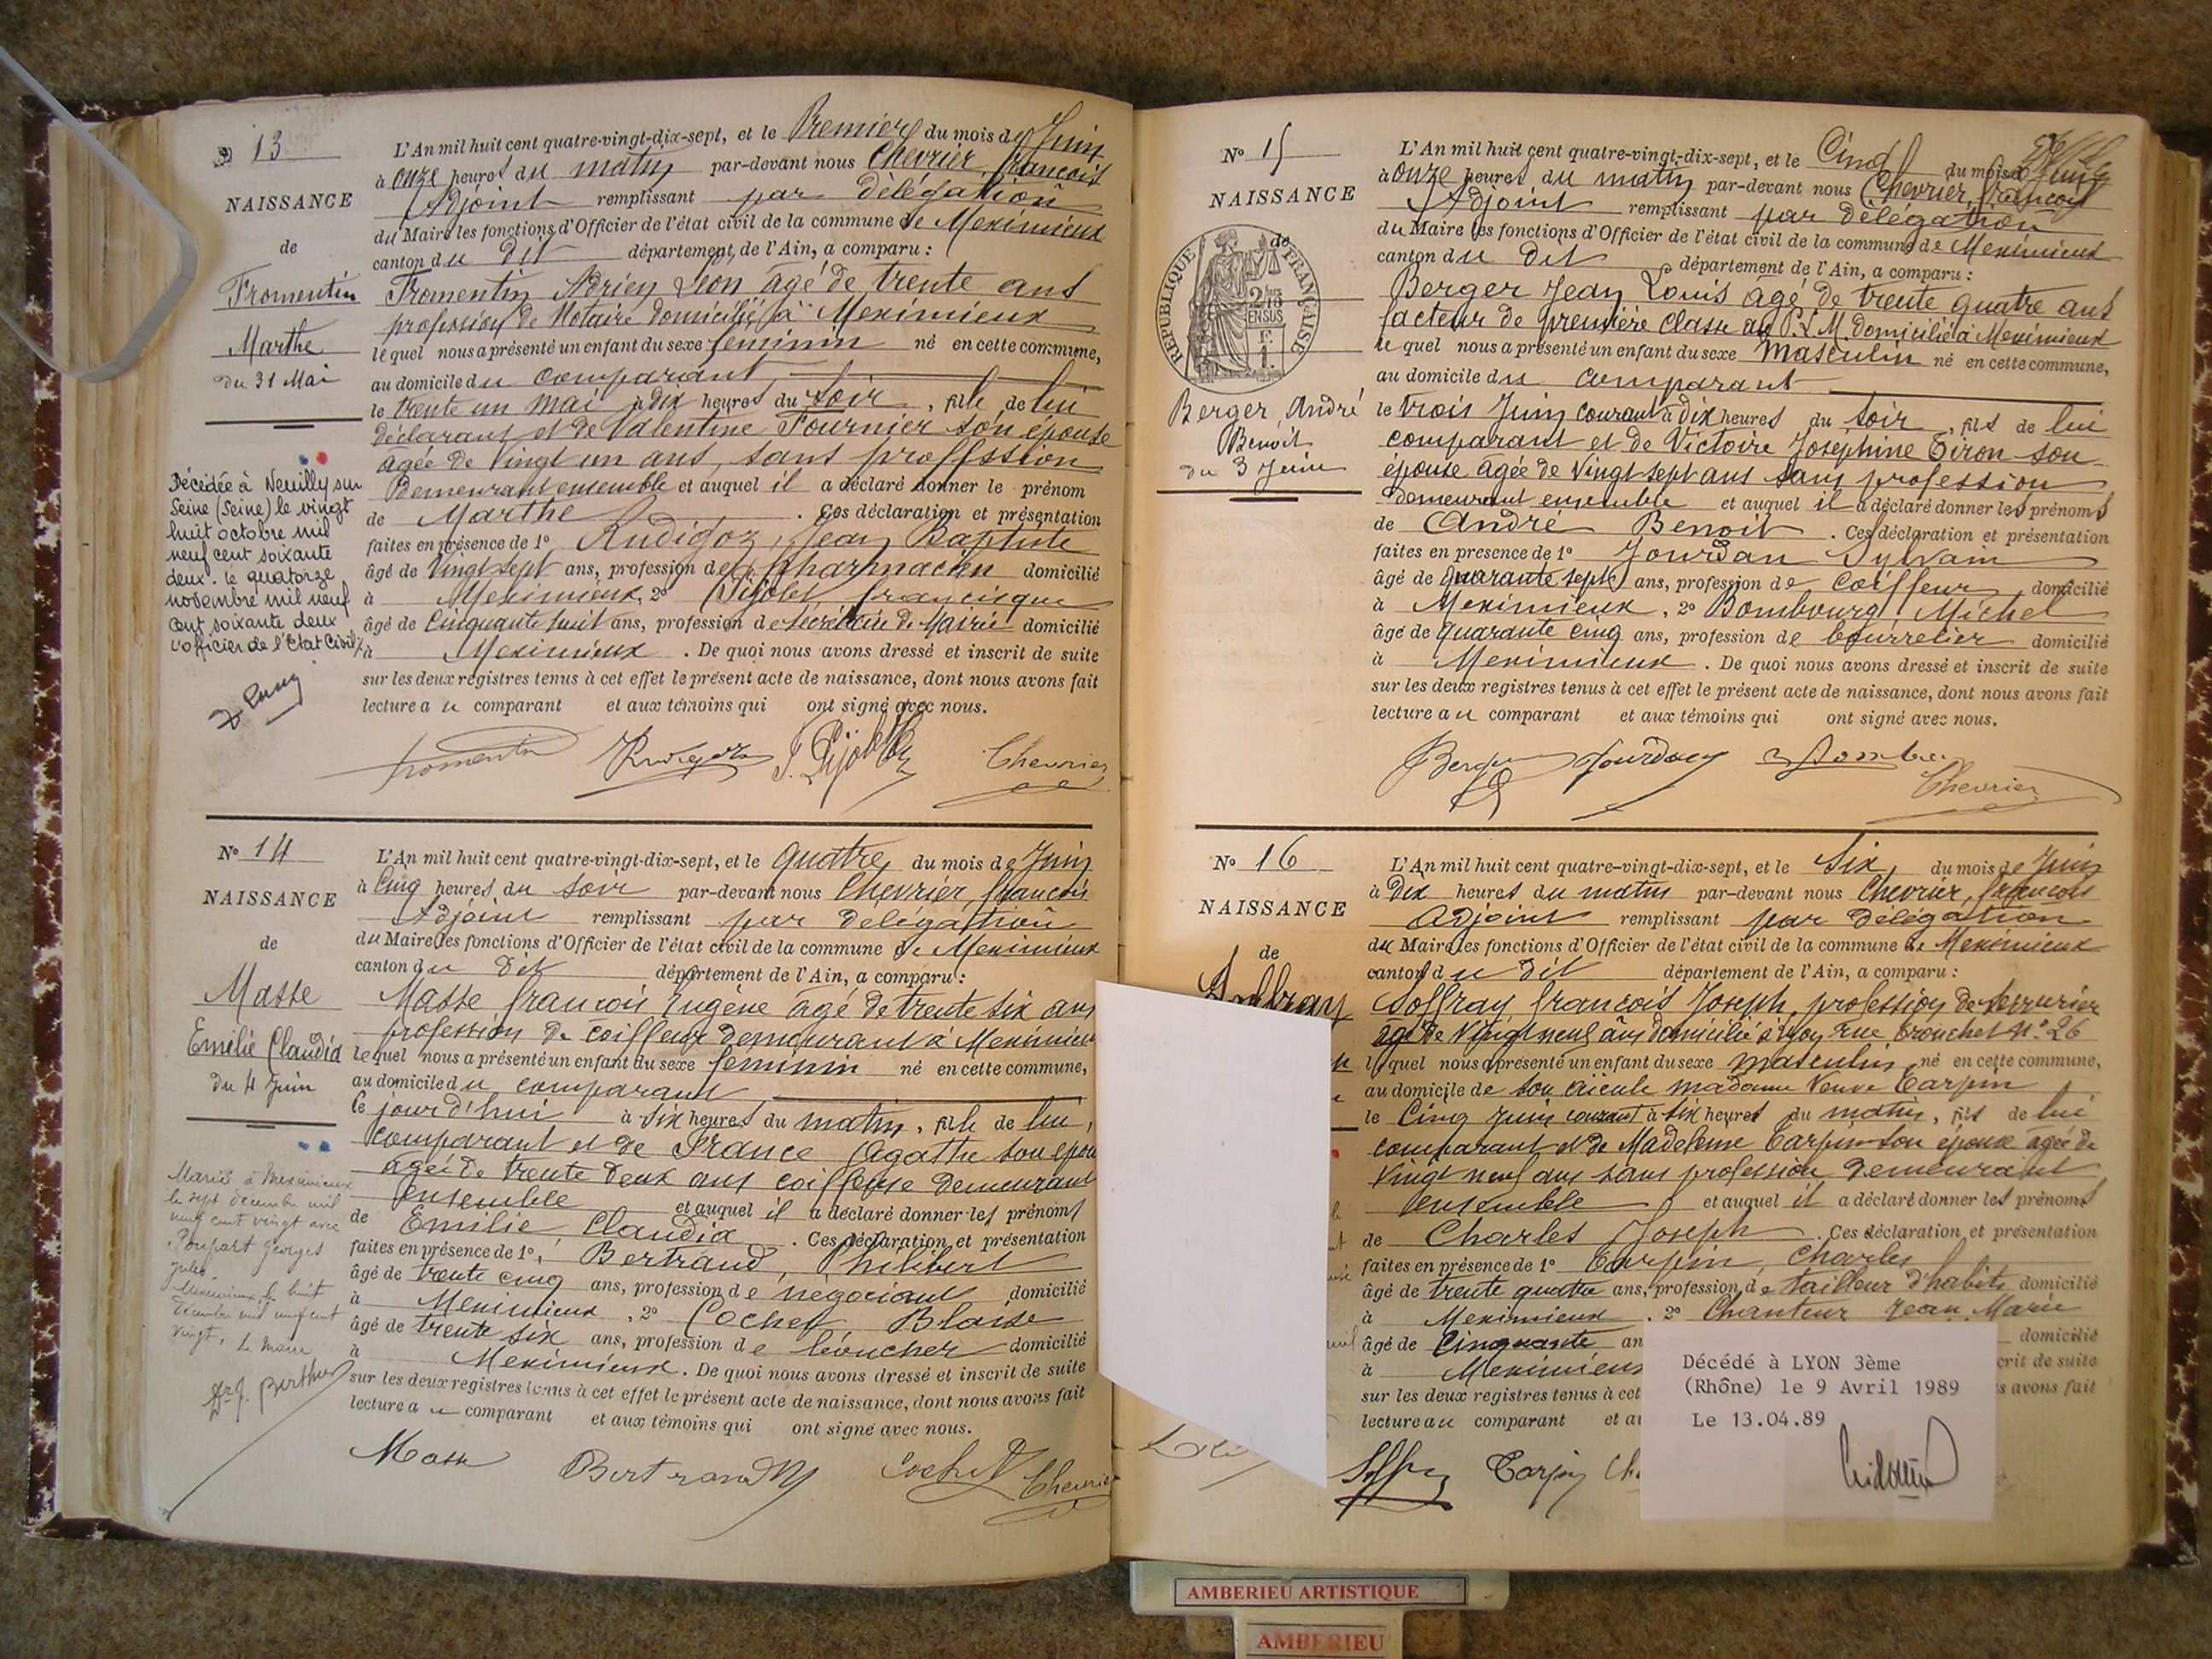 13
NAISSANCE
de
Fromentin
Marthe
du 31 Mai
Décédée à Neuilly sur
Seine (Seine) le vingt
huit octobre mil
neuf cent soixante
deux. le quatorze
novembre mil neuf
cent soixante deux
l'officier de l'Etat Civil
L'An mil huit cent quatre-vingt-dix-sept, et le Premier du mois de Juin
à onze heures du matin par-devant nous Chevrier, françois
Adjoint remplissant par délégation
du Maire les fonctions d'Officier de l'état civil de la commune de Meximieux
canton du dit département de l'Ain, a comparu :
Fromentin Adrien Léon âgé de trente ans
profession de Notaire domicilié à Meximieux
lequel nous a présenté un enfant du sexe feminin né en cette commune,
au domicile du comparant,
le trente un mai à dix heures du soir, fille de lui
déclarant et de Valentine Fournier son épouse
agée de vingt un ans, sans proffession
Demeurant ensemble et auquel il a déclaré donner le prénom
de Marthe. Ces déclaration et présentation
faites en présence de 1° Rudigoz, Jean Baptiste
âgé de vingt sept ans, profession de pharmacien domicilié
à Meximieux, 2° Pijolet, françisque
âgé de Cinquante huit ans, profession de secrétaire de Mairie domicilié
à Meximieux. De quoi nous avons dressé et inscrit de suite
sur les deux registres tenus à cet effet le présent acte de naissance, dont nous avons fait
lecture au comparant et aux témoins qui ont signé avec nous.
fromentin Rudigoz Chevrier
N° 14
NAISSANCE
de
Masse
Emilie Claudia
du 4 Juin
Mariée à Meximieux
le sept décembre mil
neuf cent vingt avec
Poupart Georges
Jules
Meximieux le huit
décembre mil neuf cent
vingt, Le Maire
L'An mil huit cent quatre-vingt-dix-sept, et le quatre du mois de Juin
à Cinq heures du soir par-devant nous Chevrier, françois
Adjoint remplissant par délégation
du Maire les fonctions d'Officier de l'état civil de la commune de Meximieux
canton du dit département de l'Ain, a comparu :
Masse françois Eugène âgé de trente six ans
profession de coiffeur demeurant à Meximieux
lequel nous a présenté un enfant du sexe feminin né en cette commune,
au domicile du comparant
ce jourd'hui à six heures du matin, fille de lui,
comparant et de France Agathe son épouse
agée de trente deux ans coiffeuse demeurant
ensemble et auquel il a déclaré donner les prénoms
de Emilie, Claudia. Ces déclaration et présentation
faites en présence de 1°, Bertrand, Philibert
âgé de trente cinq ans, profession de négociant domicilié
à Meximieux, 2° Cochet Blaise
âgé de trente six ans, profession de boucher domicilié
à Meximieux. De quoi nous avons dressé et inscrit de suite
sur les deux registres tenus à cet effet le présent acte de naissance, dont nous avons fait
lecture au comparant et aux témoins qui ont signé avec nous.
Masse Bertrand Cochet Chevrier
N° 15
NAISSANCE
de
RÉPUBLIQUE FRANÇAISE
Berger, André
Benoit
du 3 Juin
L'An mil huit cent quatre-vingt-dix-sept, et le Cinq du mois de Juin
à onze heures du matin par-devant nous Chevrier, françois
Adjoint remplissant par délégation
du Maire les fonctions d'Officier de l'état civil de la commune de Meximieux
canton du dit département de l'Ain, a comparu :
Berger Jean Louis agé de trente quatre ans
facteur de première classe au P.L.M. domicilié à Meximieux
lequel nous a présenté un enfant du sexe Masculin né en cette commune,
au domicile du comparant
le trois Juin courant à dix heures du soir, fils de lui
comparant et de Victoire Josephine Tiron son
épouse agée de vingt sept ans sans profession
demeurant ensemble et auquel il a déclaré donner les prénoms
de André Benoit. Ces déclaration et présentation
faites en presence de 1° Jourdan Sylvain
âgé de quarante sept ans, profession de coiffeur domicilié
à Meximieux, 2° Bombourg Michel
âgé de quarante cinq ans, profession de bourrelier domicilié
à Meximieux. De quoi nous avons dressé et inscrit de suite
sur les deux registres tenus à cet effet le présent acte de naissance, dont nous avons fait
lecture au comparant et aux témoins qui ont signé avec nous.
Berger Jourdan Chevrier
N° 16
NAISSANCE
de
Soffray
L'An mil huit cent quatre-vingt-dix-sept, et le Six du mois de Juin
à dix heures du matin par-devant nous Chevrier, françois
Adjoint remplissant par délégation
du Maire les fonctions d'Officier de l'état civil de la commune de Meximieux
canton du dit département de l'Ain, a comparu :
Soffray, françois Joseph, profession de serrurier
agé de vingt neuf ans domicilié à Lyon rue Tronchet N° 26
lequel nous a présenté un enfant du sexe masculin né en cette commune,
au domicile de son aïeule madame Veuve Carpin
le Cinq juin courant à six heures du matin, fils de lui
comparant et de Madeleine Carpin son épouse agée de
vingt neuf ans sans profession demeurant
ensemble et auquel il a déclaré donner les prénoms
de Charles Joseph. Ces déclaration et présentation
faites en présence de 1° Carpin, Charles
âgé de trente quatre ans, profession de tailleur d'habits domicilié
à Meximieux. 2° Chanteur Jean Marie
âgé de Cinquante an domicilié
à Meximieux crit de suite
sur les deux registres tenus à cet s avons fait
lecture au comparant et au
Carpin
Décédé à LYON 3ème
(Rhône) le 9 Avril 1989
Le 13.04.89
AMBERIEU ARTISTIQUE
AMBERIEU